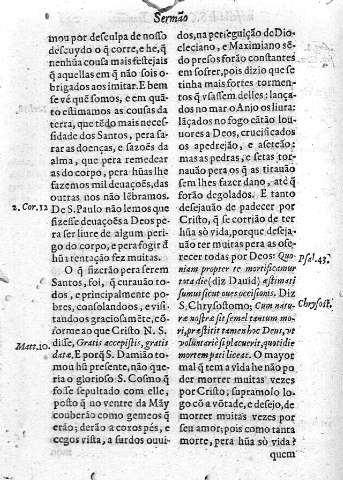 Sermão
mou por desculpa de nosso
descuydo o q̃ corre, e he, q̃
nenhũa cousa mais festejais
q̃ aquellas em q̃ não sois o-
brigados aos imitar. E bem
se vé quẽ somos, e em quã-
to estimamos as cousas da
terra, que tẽdo mais neces-
sidade dos Santos, pera sa-
rar as doenças, e sazoẽs da
alma, que pera remedear
as do corpo, pera hũas lhe
fazemos mil deuaçoẽs, das
outras nos não lẽbramos.
2. Cor. 12.
De S. Paulo não lemos que
fizesse deuaçoẽs a Deos pe-
ra ser liure de algum peri-
go do corpo, e pera fogir de
hũa tentação fez muitas.
O q̃ fizerão pera serem
Santos, foi, q̃ curauão to-
dos, e principalmente po-
bres, consolandoos, e visi-
tandoos graciosamẽte, cõ-
forme ao que Cristo N. S.
Matt. 10.
disse, Gratis accepistis, gratis
date. E porq̃ S. Damião to-
mou hũ presente, não que-
ria o glorioso S. Cosmo q̃
fosse sepultado com elle,
posto q̃ no ventre da Mãy
couberão como gemeos q̃
erão; derão a coxos pés, e
cegos vista, a surdos ouui-
dos, na perseguição de Dio-
cleciano, e Maximiano sẽ-
do presos forão constantes
em sofrer, pois dizio que se
tinha mais fortes tormen-
tos q̃ vsassem delles: lança-
dos no mar o Anjo os liura:
lãçados no fogo cãtão lou-
uores a Deos, crucificados
os apedrejão, e asetéão:
mas as pedras, e setas tor-
nauão pera os q̃ as tirauão
sem lhes fazer dano, até q̃
forão degolados. E tanto
desejauão de padecer por
Cristo, q̃ se corrião de ter
hũa só vida, porque deseja-
uão ter muitas pera as ofe-
recer todas por Deos: Quo-
Psal. 43.
niam propter te mortificamur
tota die (diz Dauid) æstimati
sumus sicut oues occisionis. Diz
Chrysost.
S. Chrysostomo; Cum natu-
ræ nostræ sit semel tantum mo-
ri, præstitit tamen hoc Deus, vt
voluntarie si placuerit, quotidie
mortem pati liceat. O mayor
mal q̃ tem a vida he não po-
der morrer muitas vezes
por Cristo; supramolo lo-
go cõ a võtade, e desejo, de
morrer muitas vezes por
seu amor; pois como tanta
morte, pera hũa só vida?
quem